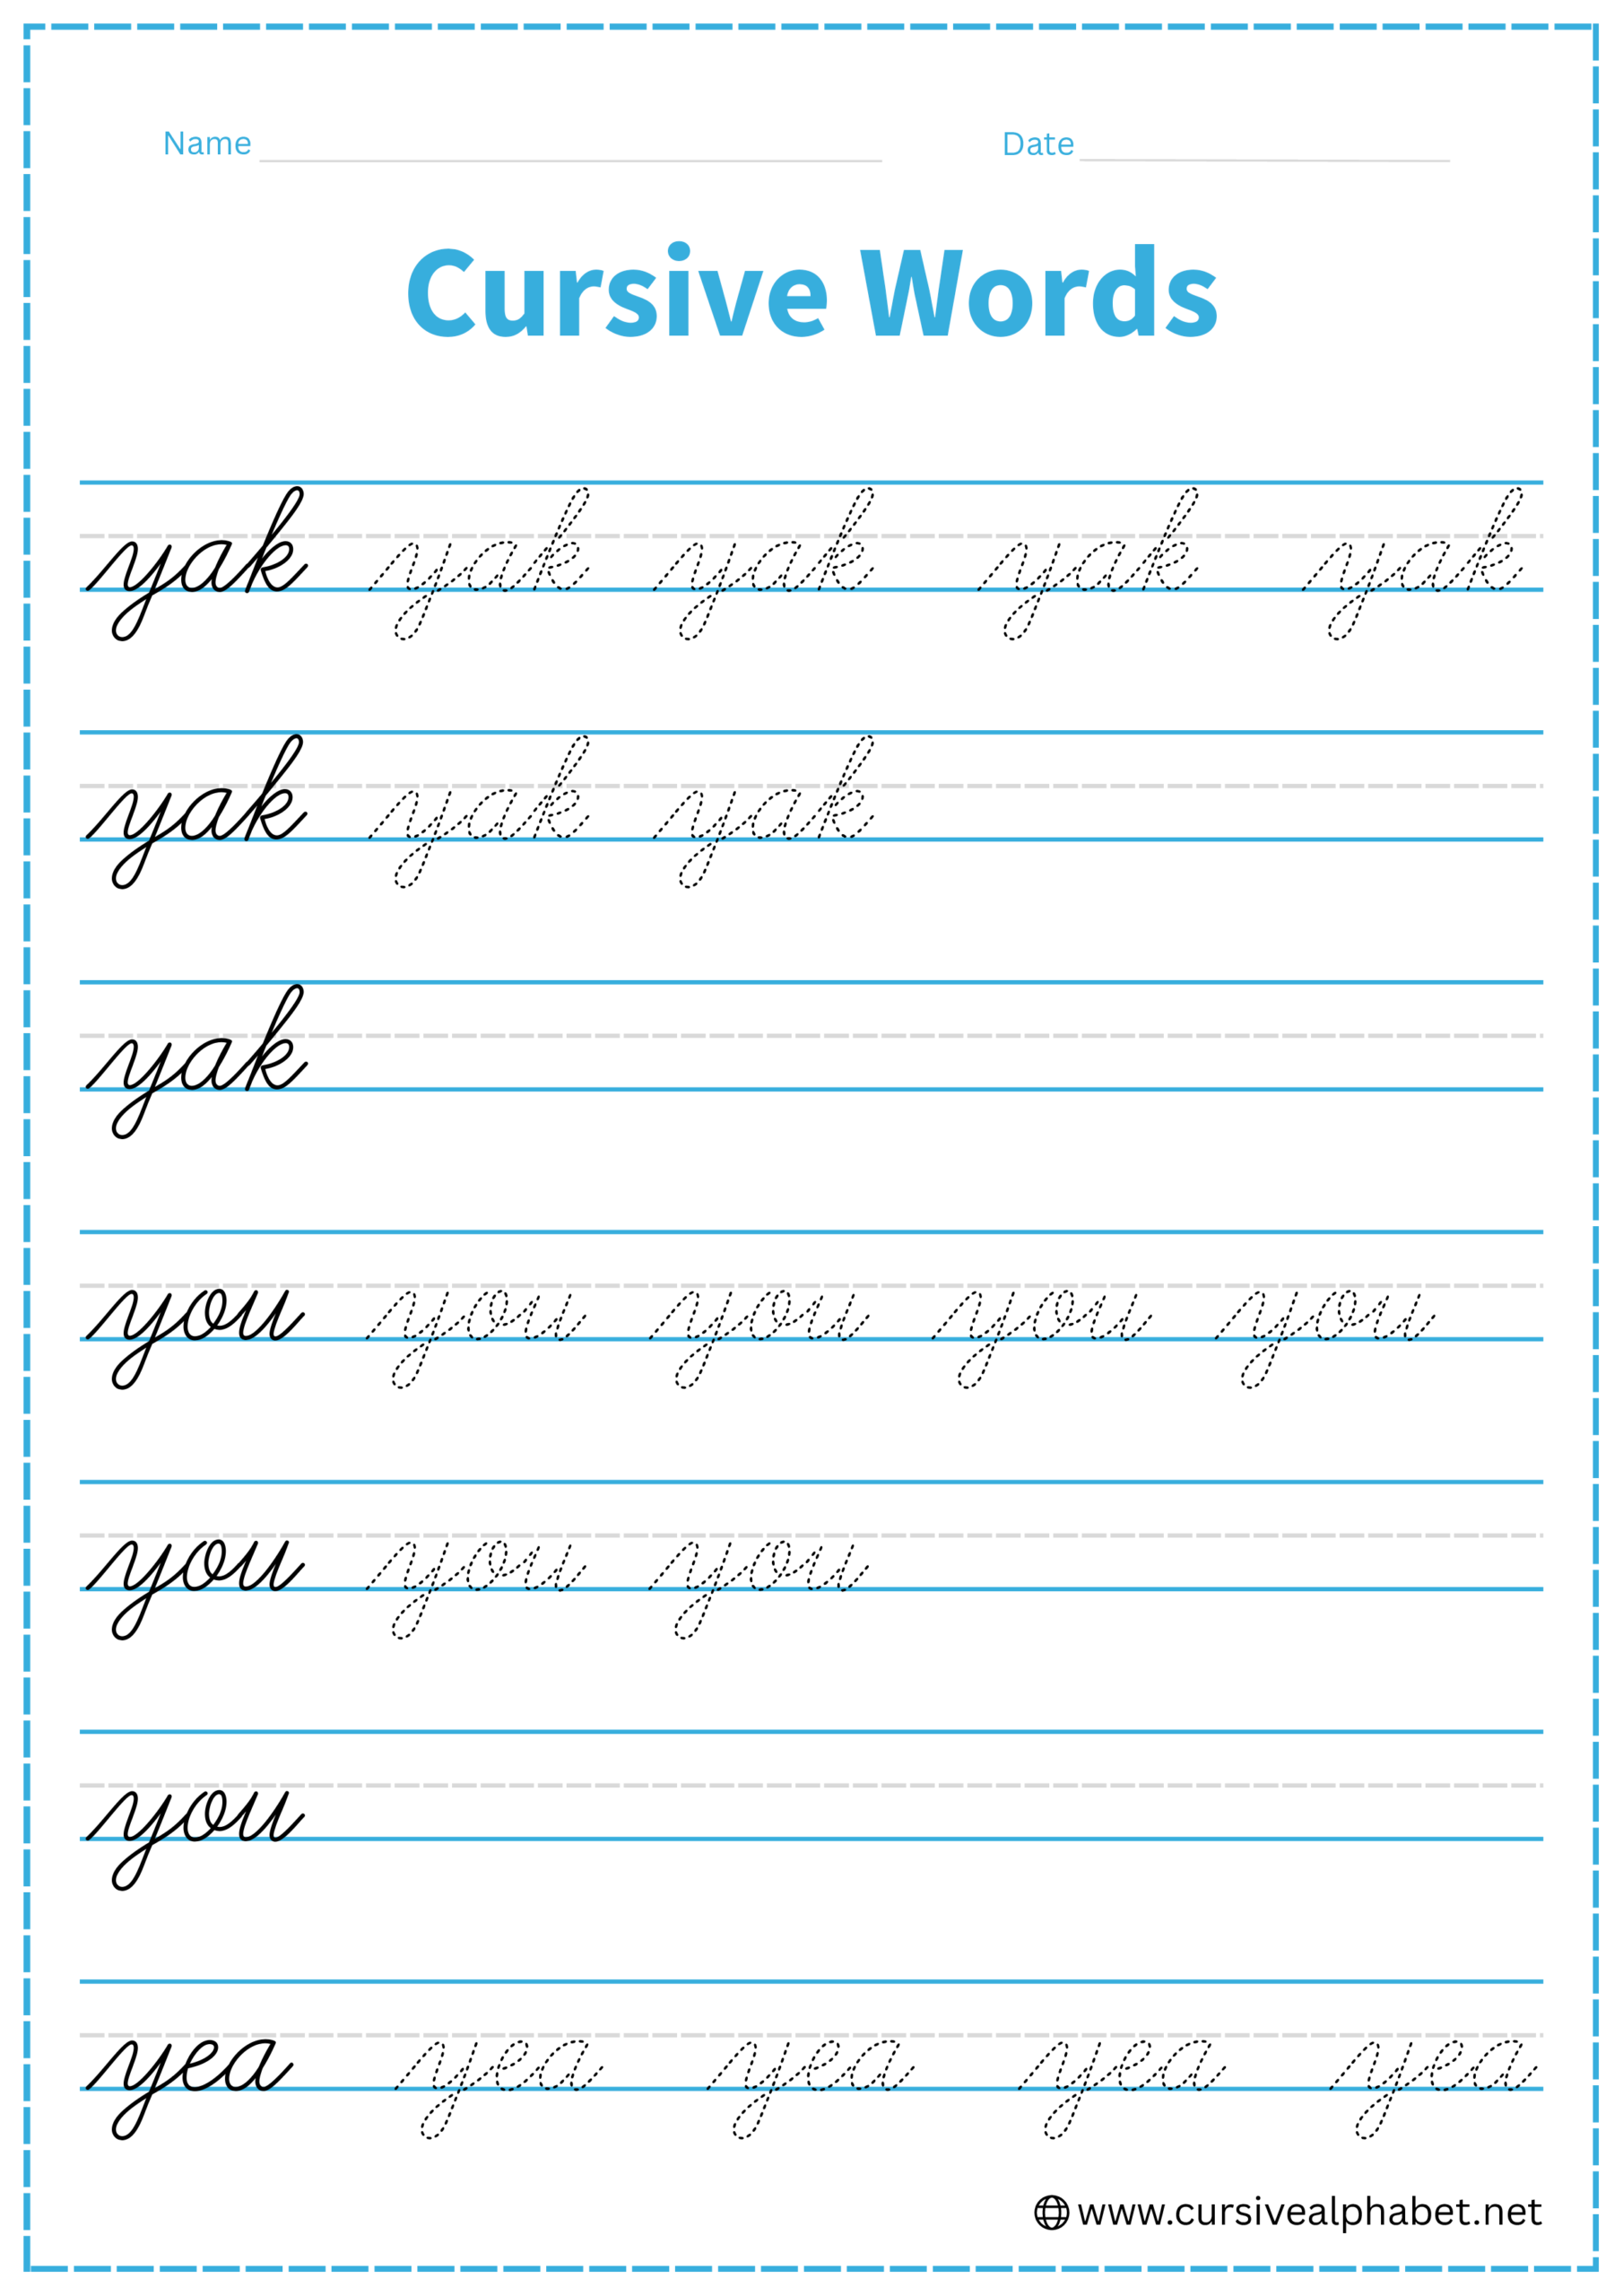 Name Date
Cursive Words
yak yak yak yak yak
yak yak yak
yak
you you you you you
you you you
you
yea yea yea yea yea
www.cursivealphabet.net